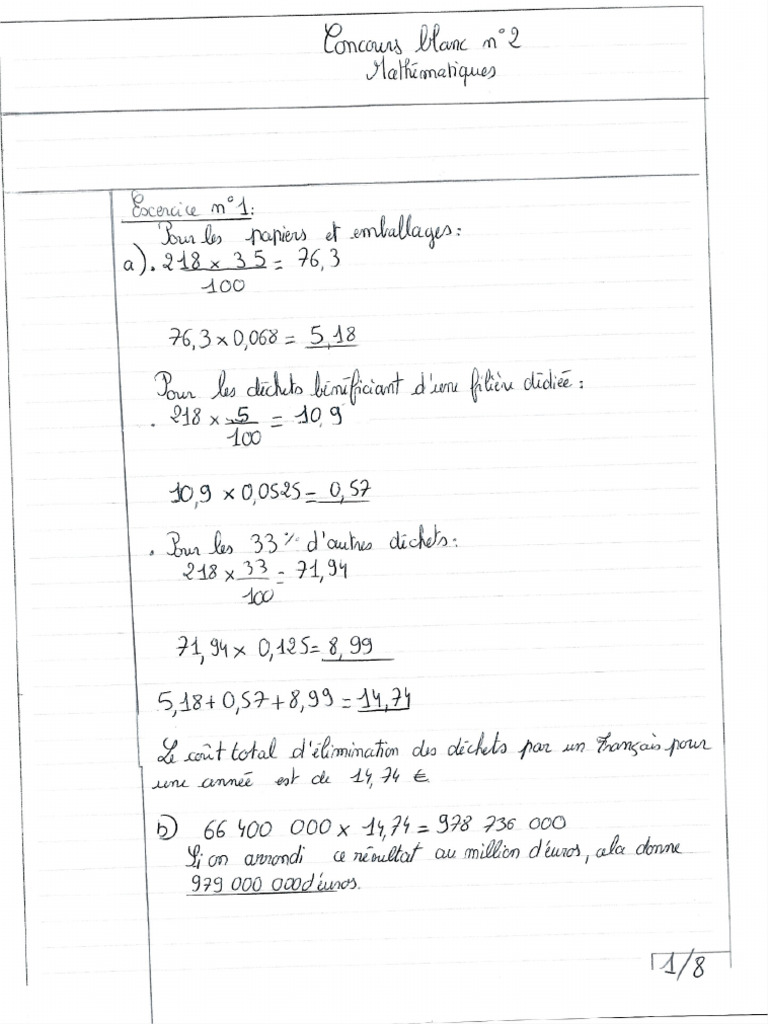 Concours blanc n°2
Mathématiques
Excercice n°1:
Pour les papiers et emballages:
a). 218 × 35 = 76,3
100
76,3 × 0,068 = 5,18
Pour les déchets bénéficiant d'une filière dédiée:
. 218 × 5 = 10,9
100
10,9 × 0,0525 = 0,57
. Pour les 33% d'autres déchets:
218 × 33 = 71,94
100
71,94 × 0,125 = 8,99
5,18 + 0,57 + 8,99 = 14,74
Le coût total d'élimination des déchets par un français pour
une année est de 14,74 €
b) 66 400 000 × 14,74 = 978 736 000
Si on arrondi ce résultat au million d'euros, cela donne
979 000 000 d'euros.
1/8